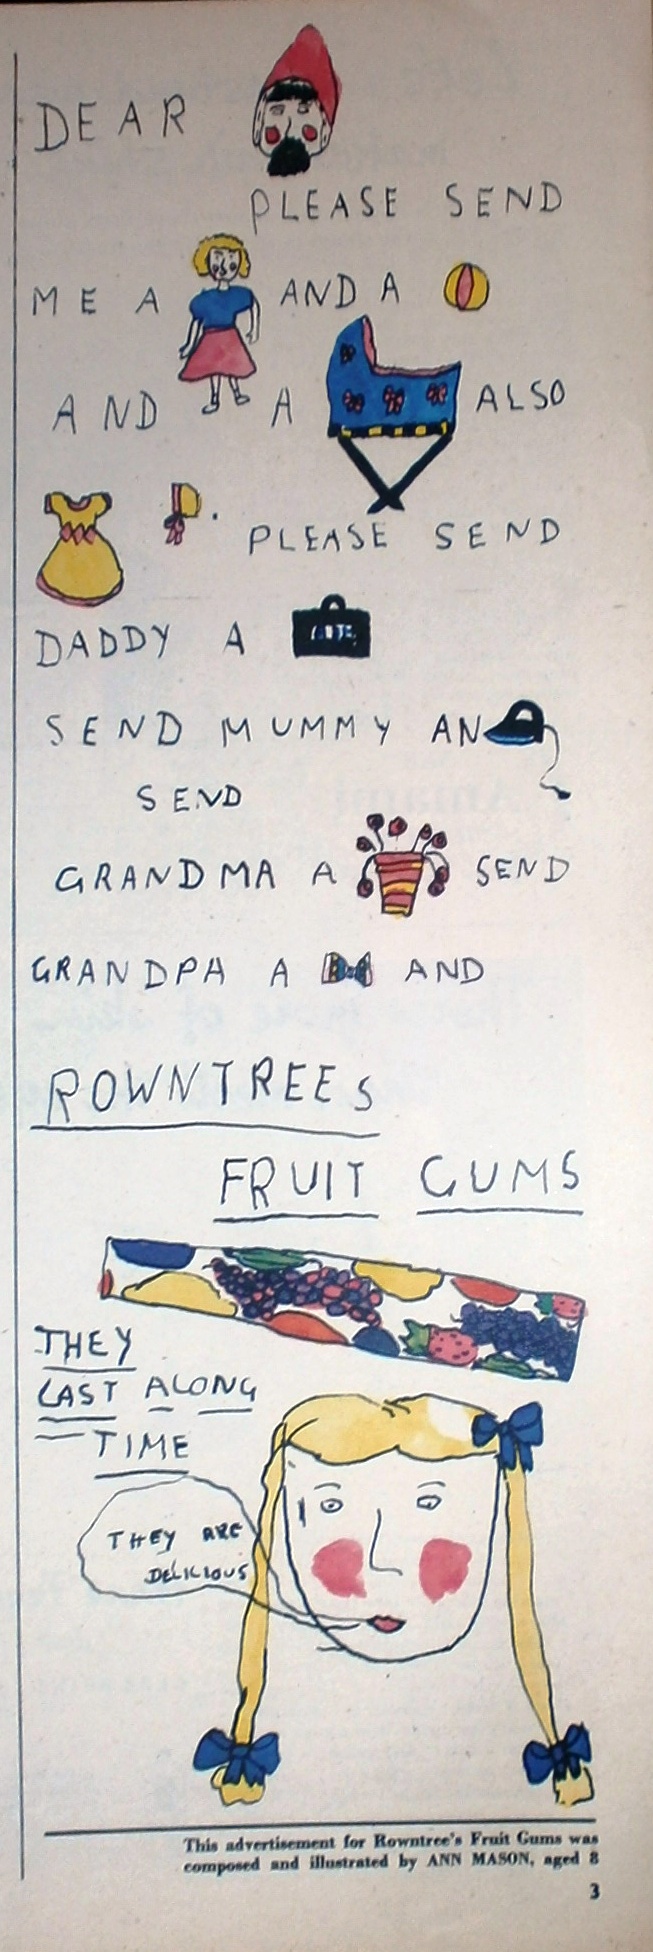 DEAR
PLEASE SEND
ME A AND A
AND A ALSO
PLEASE SEND
DADDY A
SEND MUMMY AN
SEND
GRANDMA A SEND
GRANDPA A AND
ROWNTREES
FRUIT GUMS
THEY
LAST ALONG
TIME
THEY ARE
DELICIOUS
This advertisement for Rowntree's Fruit Gums was
composed and illustrated by ANN MASON, aged 8
3